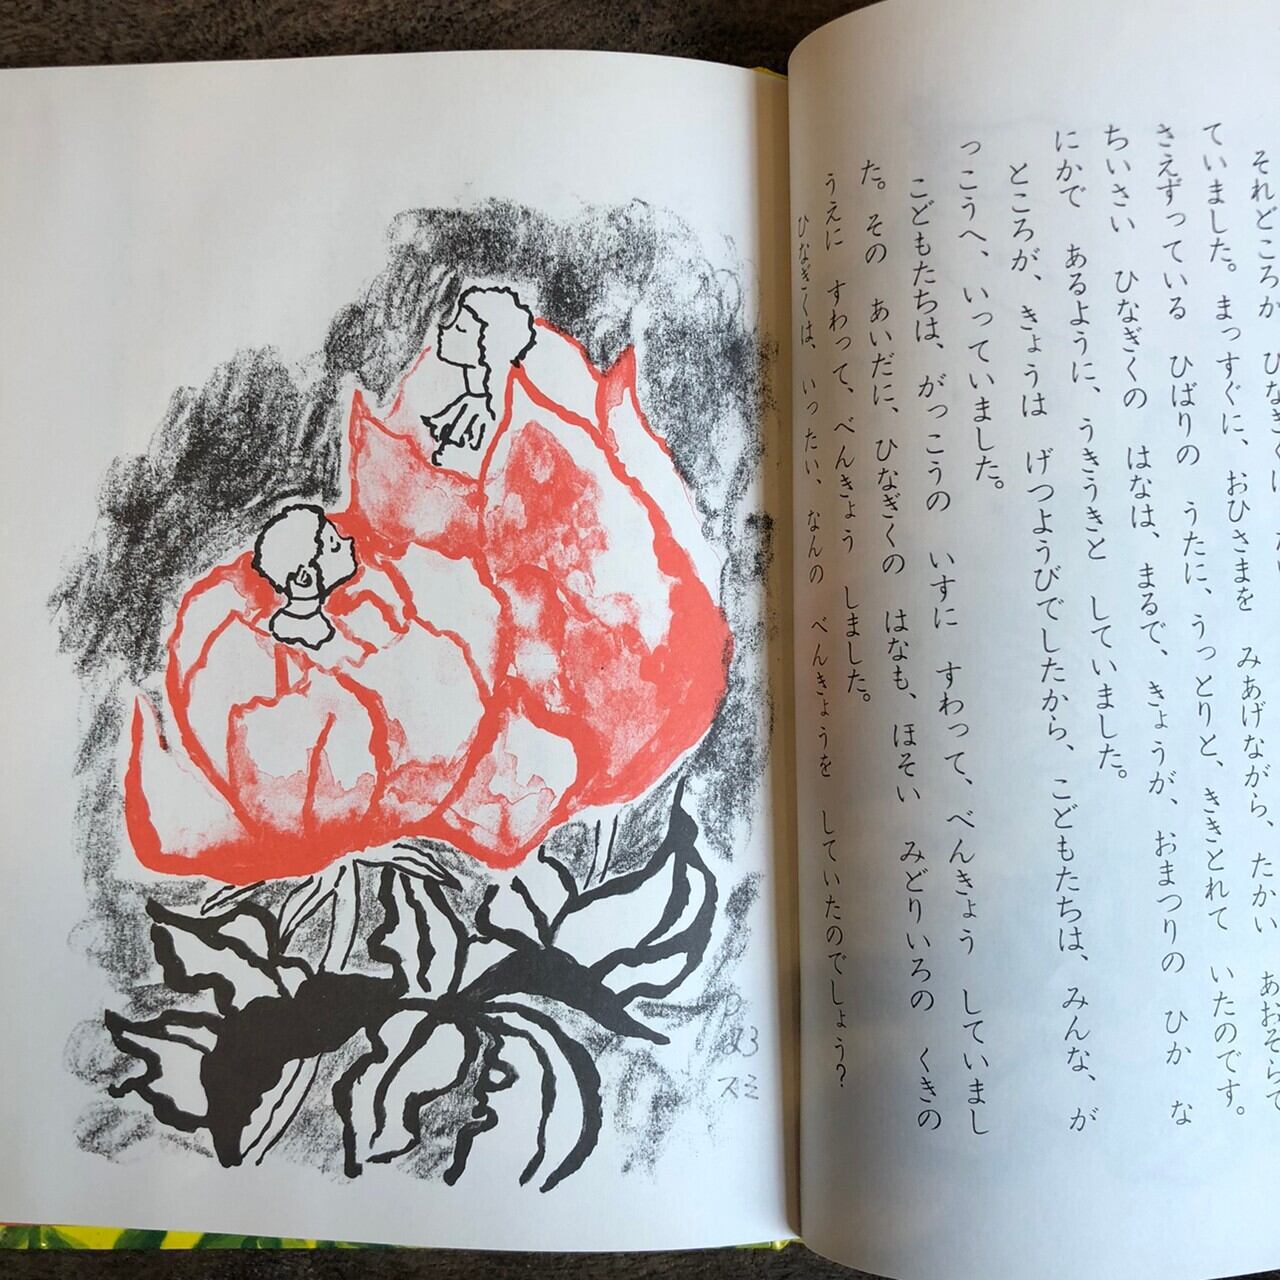 それどころか ひなぎくは
ていました。まっすぐに、おひさまを みあげながら、たかい あおぞらで
さえずっている ひばりの うたに、うっとりと、ききとれて いたのです。
ちいさい ひなぎくの はなは、まるで、きょうが、おまつりの ひか な
にかで あるように、うきうきと していました。
ところが、きょうは げつようびでしたから、こどもたちは、みんな、が
っこうへ、いっていました。
こどもたちは、がっこうの いすに すわって、べんきょう していまし
た。その あいだに、ひなぎくの はなも、ほそい みどりいろの くきの
うえに すわって、べんきょう しました。
ひなぎくは、いったい、なんの べんきょうを していたのでしょう?
スミ